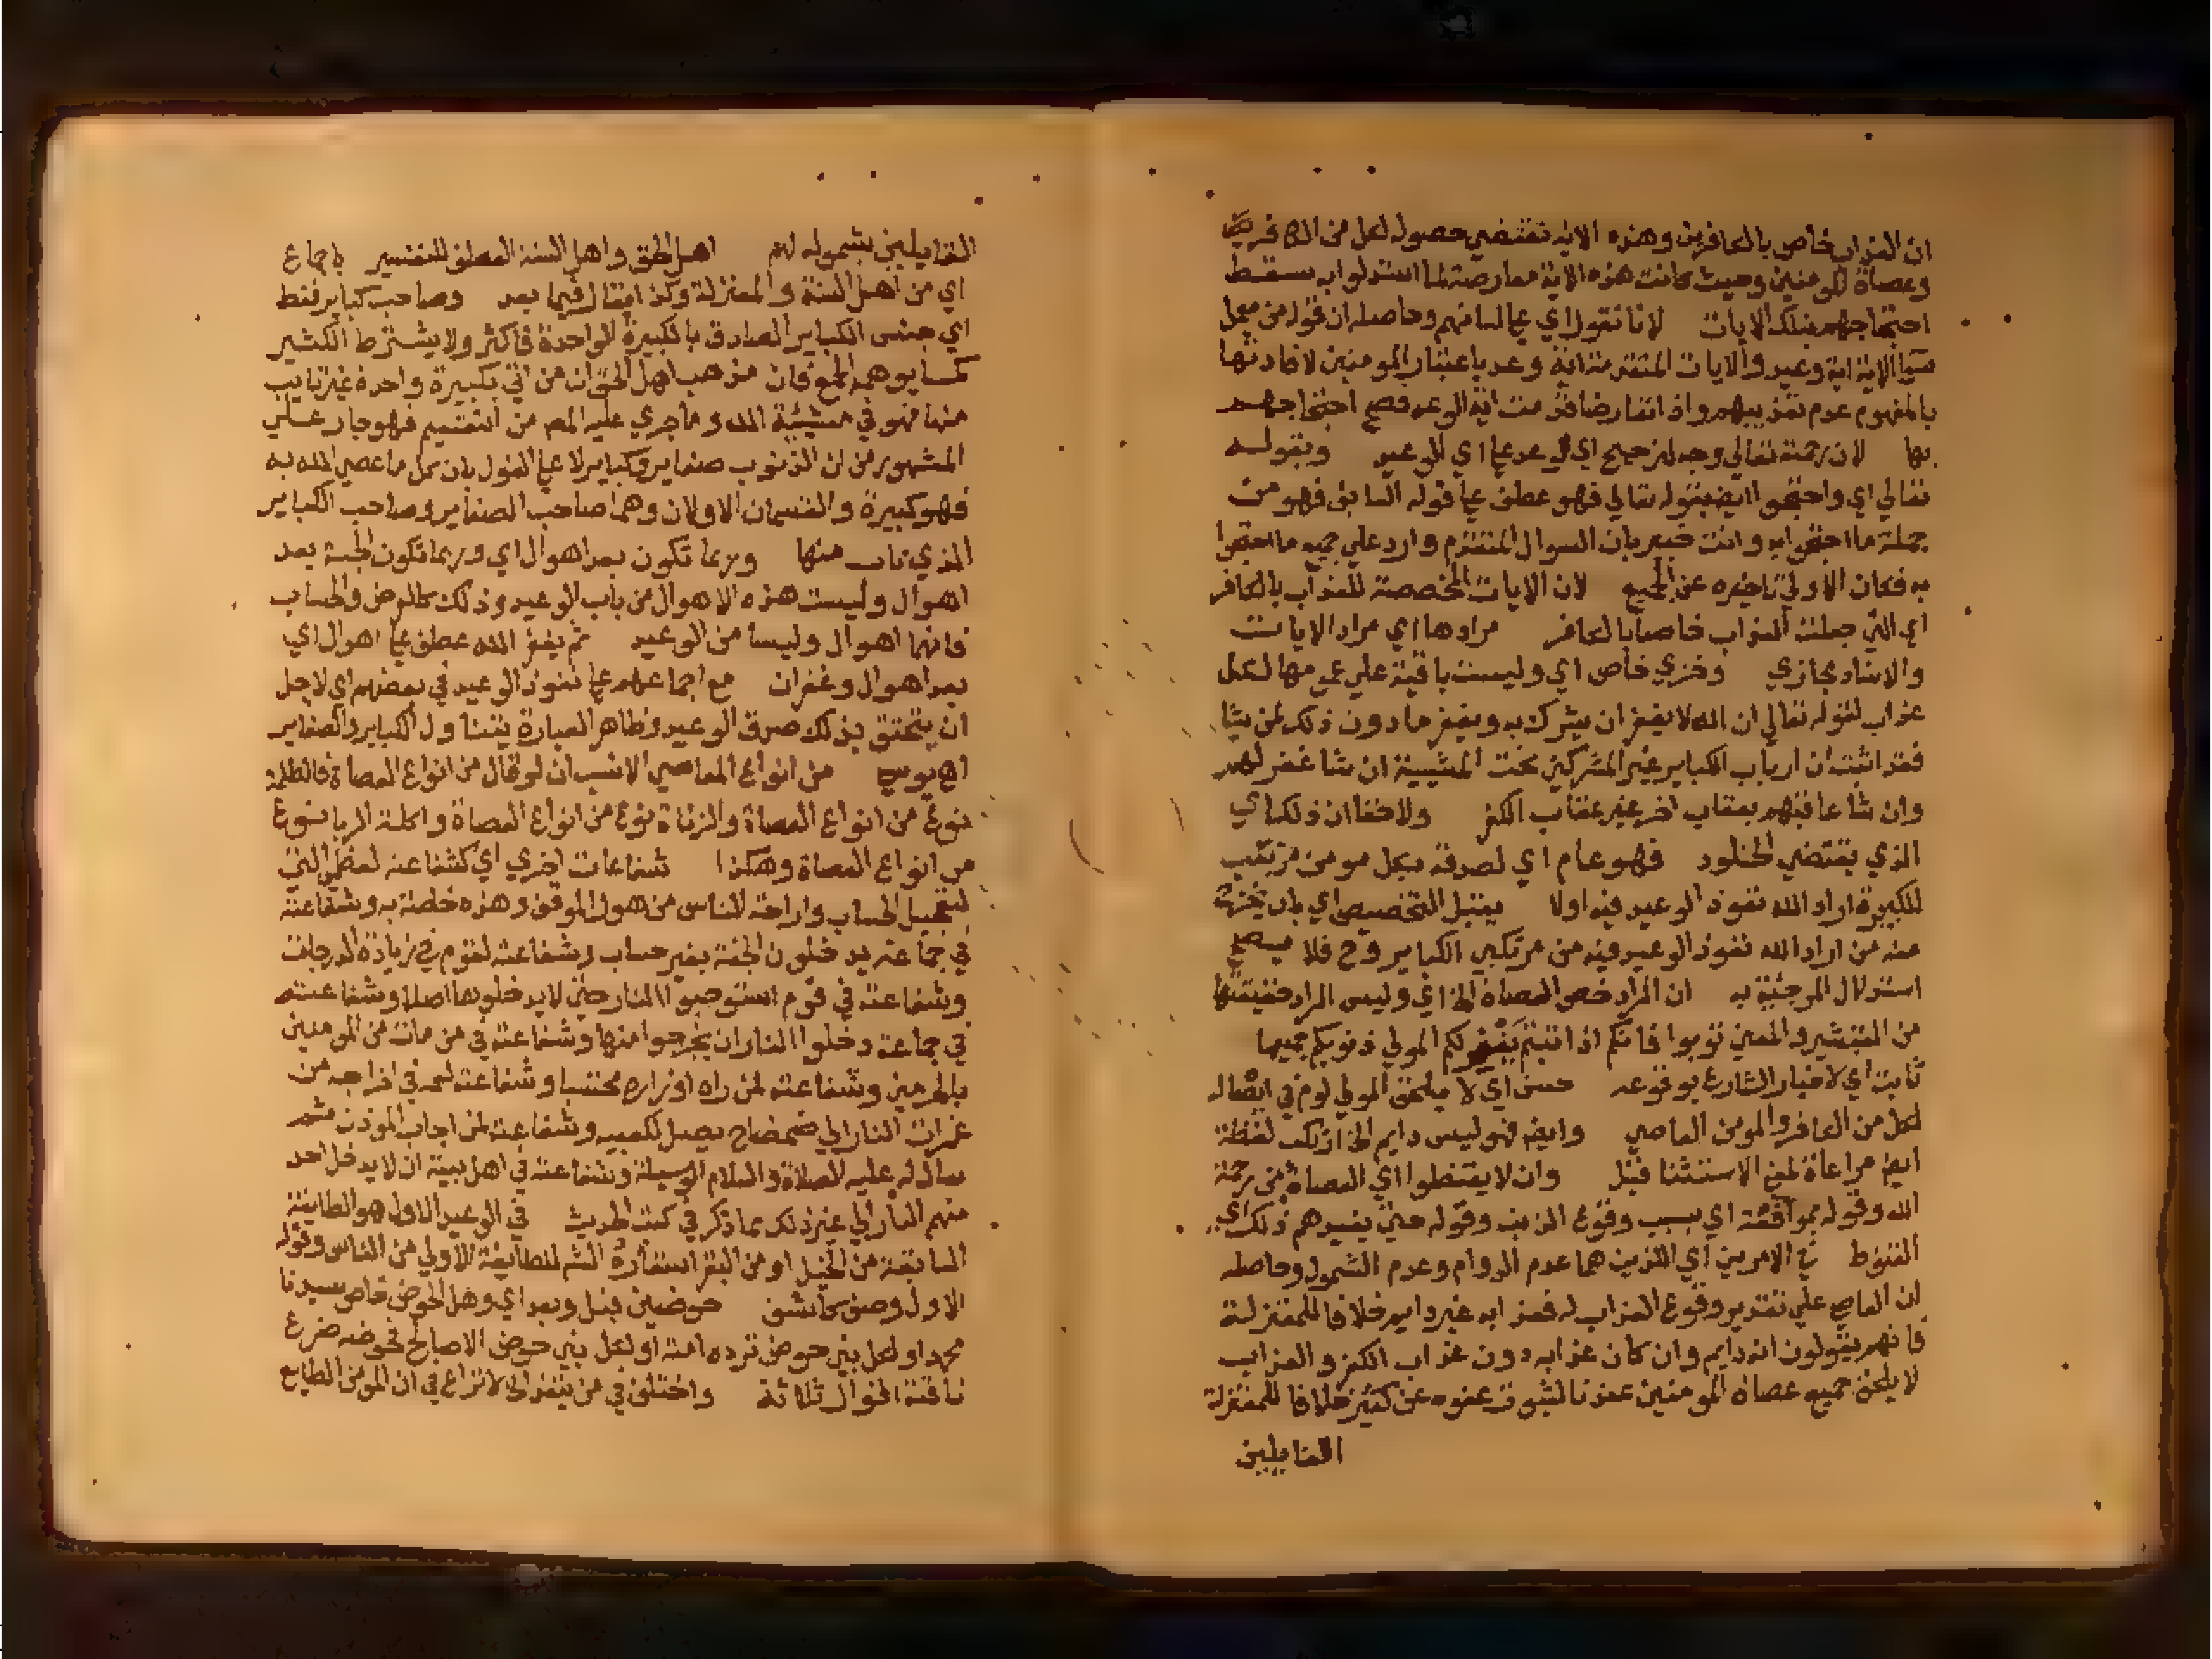 ان العذاب خاص بالكافرين وهذه الاية تقتضي حصوله لكل من الكافرين
وعصاة المومنين وحيث كانت هذه الاية معارضة لما استدلوا به سقط
احتجاجهم بتلك الايات لانا نقول اي على لسانهم وحاصله ان قوله من يعمل
الاية اية وعيد والايات المتقدمة اية وعد باعتبار المومنين لافادتها
بالمفهوم عدم تعذيبهم واذا تعارضا قدمت اية الوعد فصح احتجاجهم
بها لان رحمته تعالى وجه لترجيح اي الوعد على اي الوعيد وبقوله
تعالي اي واحتجوا ايضا بقوله تعالي فهو عطف على قوله السابق فهو من
جملة ما احتجوا به وانت خبير بان السوال المتقدم وارد علي جميع ما احتجوا
به فكان الاولي تاخيره عن الجميع لان الايات المخصصة للعذاب بالكافر
اي التي جعلت العذاب خاصا بالكافر مرادها اي مراد الايات
والاسناد مجازي وخزي خاص اي وليست باقية علي عمومها لكل
عذاب لقوله تعالي ان الله لا يغفر ان يشرك به ويغفر ما دون ذلك لمن يشا
فقد اثبت ان ارباب الكباير غير المشركين تحت المشيية ان شا غفر لهم
وان شا عاقبهم بعقاب اخر غير عقاب الكفر ولا خفا ان ذلك اي
الذي يقتضي الخلود فهو عام اي لصدقه بكل مومن مرتكب
للكبيرة اراد الله نفوذ الوعيد فيه اولا يقبل التخصيص اي بان يخرج
عنه من اراد الله نفوذ الوعيد فيه من مرتكبي الكباير وح فلا يصح
استدلال المرجئة به ان المراد خص العصاة الخ اي وليس المراد حقيقتها
من التبشير والمعني توبوا فانكم اذا تبتم يغفر لكم المولي ذنوبكم جميعا
ثابت اي لاخبار الشارع بوقوعه حسن اي لا يلحق المولي لوم في ايصاله
لكل من الكافر والمومن العاصي وايضا فهو ليس دايم الخ ارتكب لفظة
ايضا مراعاة لمعني الاستثنا قبل وان لا يقنطوا اي العصاة من رحمة
الله وقوله بمواقعة اي بسبب وقوع الذنب وقوله حتى يغيرهم ذلك اي
القنوط في الامرين اي اللذين هما عدم الدوام وعدم الشمول وحاصله
ان العاصي علي تقدير وقوع العذاب له فعذابه غير دايم خلافا للمعتزلة
فانهم يقولون انه دايم وان كان عذابه دون عذاب الكفر والعذاب
لا يلحق جميع عصاة المومنين عندنا لثبوت عفوه عن كثير خلافا للمعتزلة
القايلين
القايلين بشموله لهم اهل الحق واهل السنة العطف للتفسير باجماع
اي من اهل السنة والمعتزلة وكذا يقال فيما بعد وصاحب كباير فقط
اي جنس الكباير الصادق بالكبيرة الواحدة فاكثر ولا يشترط الكثير
كما يوهمه الجمع فان مذهب اهل الحق ان من اتي بكبيرة واحدة غير تايب
منها فهو في مشيئة الله وما جري عليه المص من التقسيم فهو جار علي
المشهور من ان الذنوب صغاير وكباير لا على القول بان كل ما عصي الله به
فهو كبيرة والقسمان الاولان وهما صاحب الصغاير وصاحب الكباير
الذي تاب منها وربما تكون بعد اهوال اي وربما تكون الجنة بعد
اهوال وليست هذه الاهوال من باب الوعيد وذلك كالمرض والحساب
فانهما اهوال وليسا من الوعيد ثم يغفر الله عطف على اهوال اي
بعد اهوال وغفران مع اجماعهم على نفوذ الوعيد في بعضهم اي لاجل
ان يتحقق بذلك صدق الوعيد وظاهر العبارة يتناول الكباير والصغاير
اهـ يوسي من انواع المعاصي الانسب ان لو قال من انواع العصاة فالظلمة
نوع من انواع العصاة والزناة نوع من انواع العصاة واكلة الربا نوع
من انواع العصاة وهكذا شفاعات اخري اي كشفاعته لفصل
لتعجيل الحساب واراحة الناس من هول الموقف وهذه خاصة به وشفاعته
في جماعة يدخلون الجنة بغير حساب وشفاعته لقوم في زيادة الدرجات
وشفاعته في قوم استوجبوا النار حتى لا يدخلوها اصلا وشفاعته
في جماعة دخلوا النار ان يخرجوا منها وشفاعته في من مات من المومنين
بالحرمين وشفاعته لمن راه او زاره محتسبا وشفاعته لعمه في اخراجه من
غمرات النار الي ضحضاح يصل لكعبيه وشفاعته لمن اجاب الموذن ثم
سال له عليه الصلاة والسلام الوسيلة وشفاعته في اهل بيته ان لا يدخل احد
منهم النار الي غير ذلك مما ذكر في كتب الحديث في الوعيد الاول هو الطايفة
السابقة من الخيل او من البقر استعارة الشم للطايفة الاولي من الناس وقوله
الاول وصف كاشف حوضين قبل وبعد اي وهل الحوض خاص بسيدنا
محمد او لكل نبي حوض ترده امته او لكل نبي حوض الا صالح فحوضه ضرع
ناقته اقوال ثلاثة واختلف في من ينفذ الخ لا نزاع في ان المومن الطايع